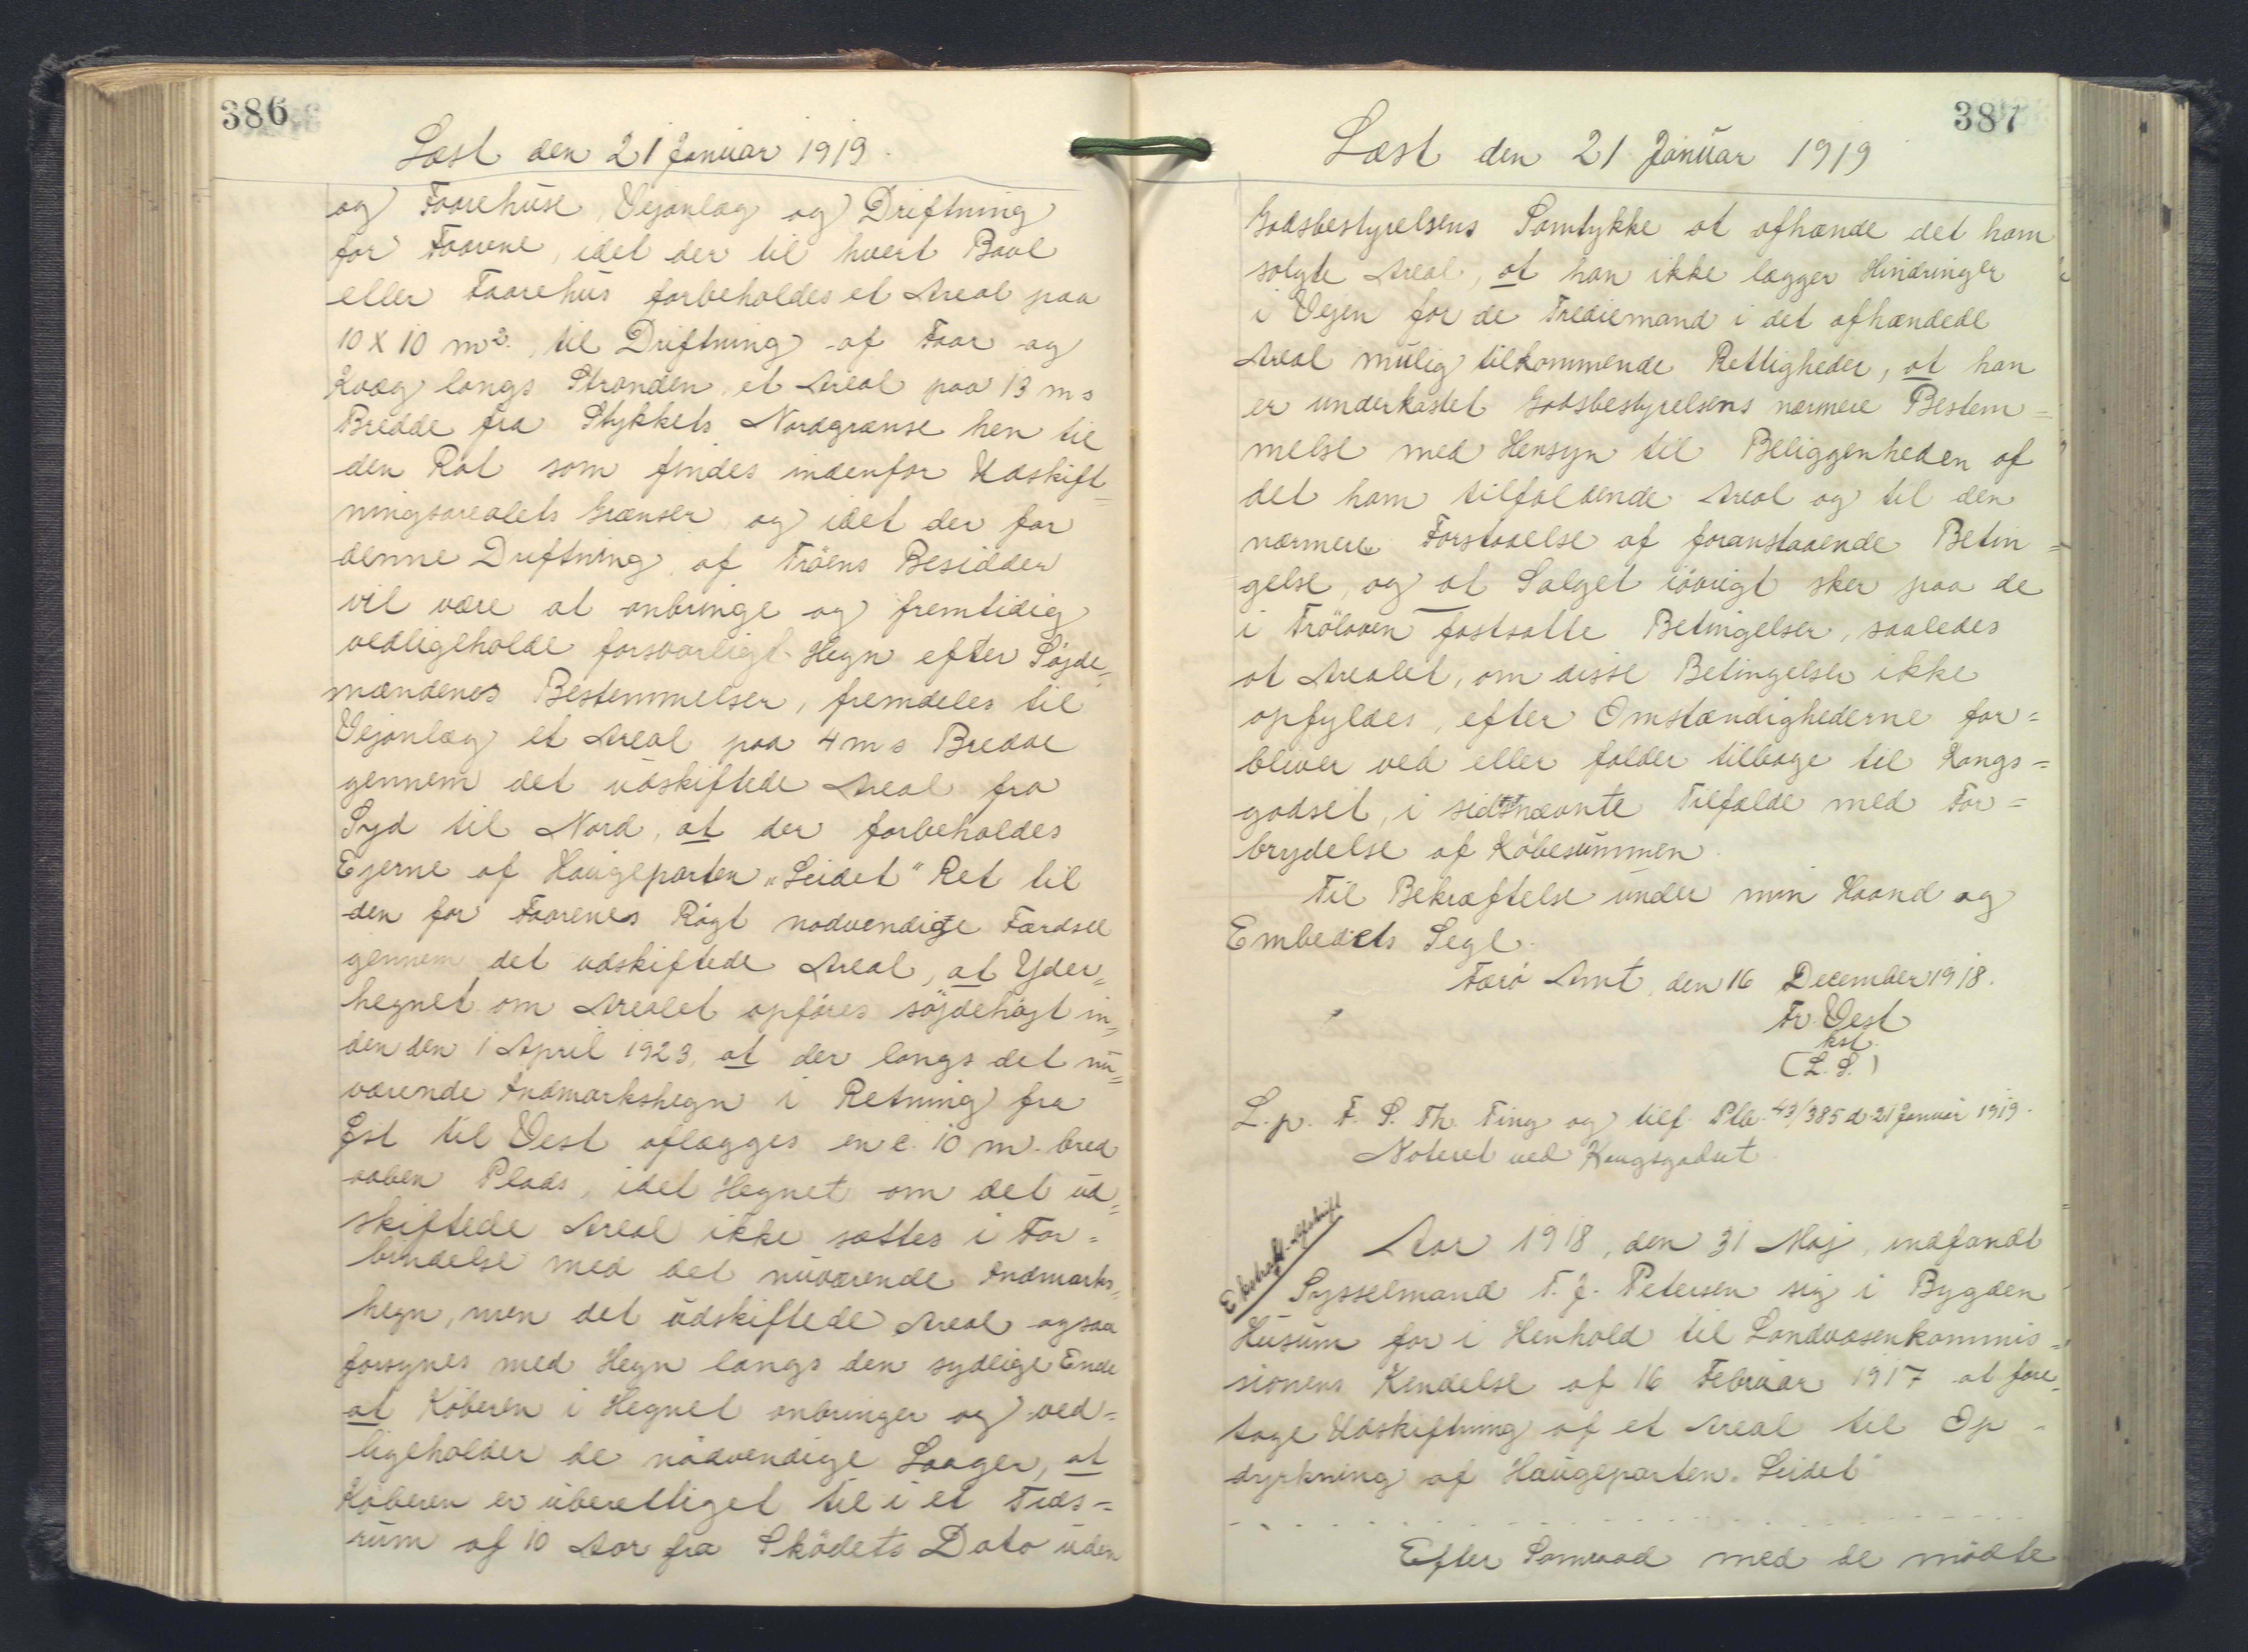 386
Læst den 21 Januar 1919.
og Faarehuse, Vejanlæg og Driftning
for Faarene, idet der til hvert Baal
eller Faarehus forbeholdes et Areal paa
10 X 10 m². til Driftning af Faar og
Kvæg langs Stranden et Areal paa 13 ms
Bredde fra Stykkets Nordgrænse hen til
den Rat som findes indenfor Udskift=
ningsarealets Grænser og idet der for
denne Driftning af Trøens Besidder
vil være at anbringe og fremtidig
vedligeholde forsvarligt Hegn efter Søjde=
mændenes Bestemmelser, fremdeles til
Vejanlæg et Areal paa 4 ms Bredde
gennem det udskiftede Areal fra
Syd til Nord, at der forbeholdes
Ejerne af Haugeparten "Leidet" Ret til
den for Faarenes Røgt nødvendige Færdsel
gennem det udskiftede Areal, at Yder=
hegnet om Arealet opføres søjdehøjt in=
den den 1 April 1923, at der langs det nu=
værende Indmarkshegn i Retning fra
Øst til Vest aflægges en c. 10 m. bred
aaben Plads, idet Hegnet om det ud=
skiftede Areal ikke sættes i For=
bindelse med det nuværende Indmarks=
hegn, men det udskiftede Areal ogsaa
forsynes med Hegn langs den sydlige Ende
at Køberen i Hegnet anbringer og ved=
ligeholder de nødvendige Laager, at
Køberen er uberettiget til i et Tids=
rum af 10 Aar fra Skødets Dato uden
387
Læst den 21 Januar 1919
Godsbestyrelsens Samtykke at afhænde det ham
solgte Areal, at han ikke lægger Hindringer
i Vejen for de Trediemand i det afhændede
Areal mulig tilkommende Rettigheder, at han
er underkastet Godsbestyrelsens nærmere Bestem=
melse med Hensyn til Beliggenheden af
det ham tilfaldende Areal og til den
nærmere Forstaaelse af foranstaaende Betin=
gelse, og at Salget iøvrigt sker paa de
i Trøloven fastsatte Betingelser, saaledes
at Arealet, om disse Betingelser ikke
opfyldes, efter Omstændighederne for=
bliver ved eller falder tilbage til Kongs=
godset, i sidstnævnte Tilfælde med For=
brydelse af Købesummen.
Til Bekræftelse under min Haand og
Embedets Segl.
Færø Amt, den 16 December 1918.
Fr. Vest
kst.
(L. S.)
L. p. F. S. Th. Ting og tilf. Pla. 43/385 d. 21 Januar 1919.
Noteret ved Kongsgodset.
Ekstrakt-Afskrift
Aar 1918, den 31 Maj, indfandt
Sysselmand T. J. Petersen sig i Bygden
Husum for i Henhold til Landvæsenkommis=
sionens Kendelse af 16 Februar 1917 at fore=
tage Udskiftning af et Areal til Op-
dyrkning af Haugeparten "Leidet"
- - - - - - - - - - - - - - - - - - - -
Efter Samraad med de mødte